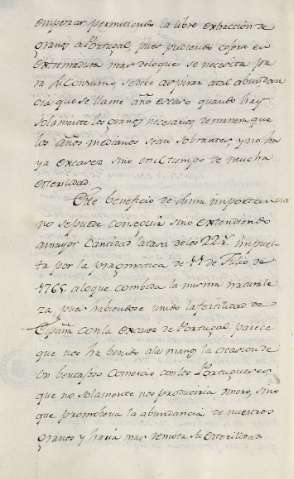 empezar permitiendo la libre extraccion de
granos a Portugal, pues habiendo copia en
Extremadura mas de lo que se necesita pa
ra el Consumo, se debe aspirar a tal abundan
cia que se llame año escaso quando hay
solamente los granos necesarios, de manera que
los años medianos sean sobrantes, y no ha
ya escasez sino en el tiempo de mucha
esterilidad.
Este beneficio de suma importancia
no se puede conseguir sino extendiendo
a mayor Cantidad la tasa de los 22 r.s impues
ta por la pragmatica de 11 de Julio de
1765 a lo que combida la misma naturale
za pues habiendose unido la fertilidad de
España con la escasez de Portugal parece
que nos ha benido a la mano la ocasion de
un bentajoso Comercio con los Portugueses
que no solamente nos produciria dinero, sino
que promoberia la abundancia de nuestros
granos y haria mas remota la esterilidad